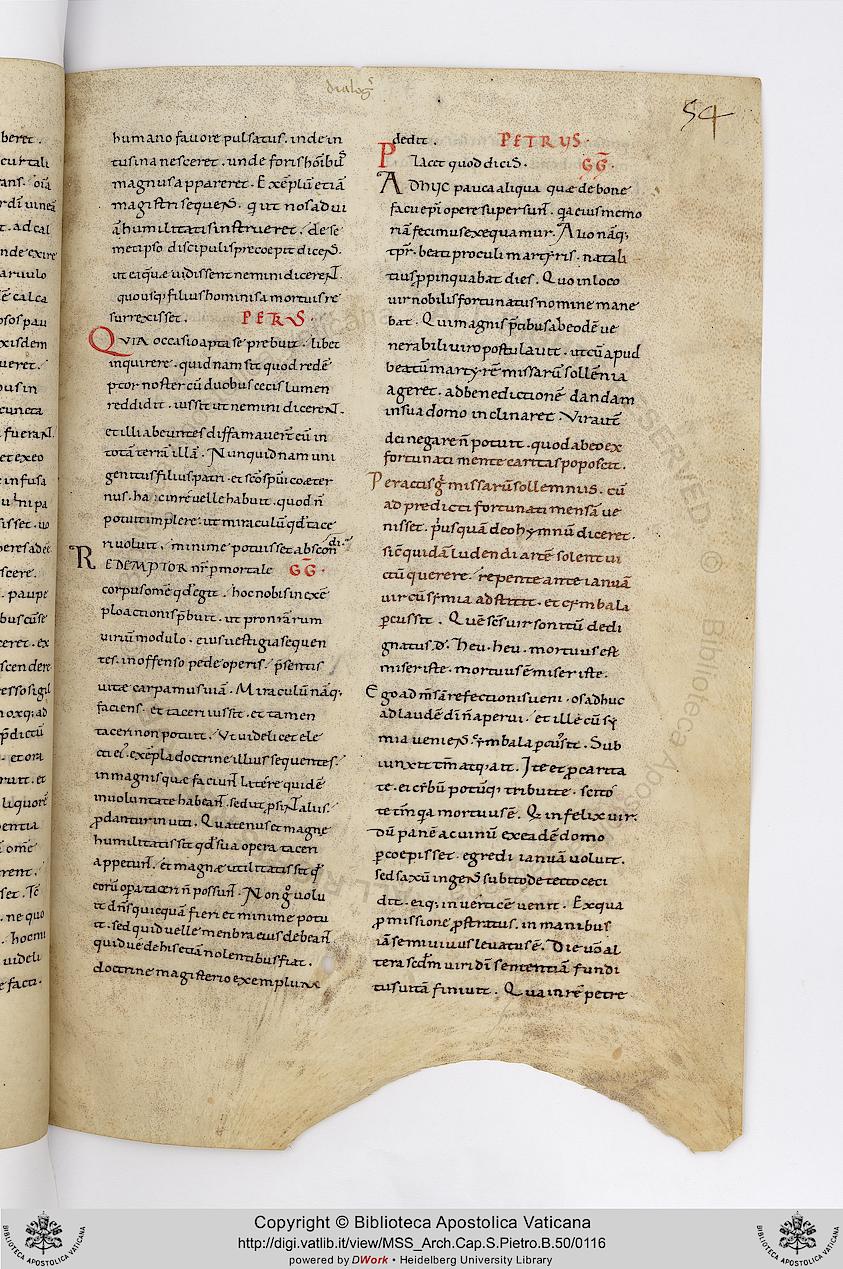 dialog᷒
54
humano fauore pulsatus . inde in
tus inanesceret . unde foris hōibꝰ
magnus appareret . Exēplū etiā
magistri sequens . q ut nos ad ui
ā humilitatis instrueret . de se
metipso discipulis precoepit dicens .
ut ea quę uidissent nemini dicerent .
quousq; filius hominis a mortuis re
surrexisset . PETRVS .
QVIA occasio apta se prebuit . libet
inquirere . quidnam sit quod redē
ptor noster cū duobus cecis lumen
reddidit . iussit ut nemini dicerent .
et illi abeuntes diffamauert̄ eū in
totā terrā illā . Nunquid nam uni
genitus filius patri . et sc̄o sp̄ui coęter
nus . hac in re uelle habuit . quod n̄
potuit implere . ut miraculū qđ tace
ri uoluit . minime potuisset abscon di .
REDEMPTOR nr̄ p mortale GḠ .
corpus omē qđ egit . hoc nobis in exē
plo actionis p̄buit . ut pro nr̄arum
uiriū modulo . eius uestigia sequen
tes . inoffenso pede operis p̄sentis
uitæ carpamus uiā . Miraculū nāq;
faciens . et taceri iussit . et tamen
taceri non potuit . Vt uidelicet ele
cti ei᷒ . exēpla doctrine illius sequentes .
in magnis quæ faciunt latere quidē
in uoluntate habeant . sed ut psint aliis .
ꝓdantur inuiti . Quatenus et magnę
humilitatis sit qđ sua opera taceri
appetunt . et magnæ utilitatis sit qđ
eorū opa taceri n̄ possunt . Non g̊ uolu
it dn̄s quicquā fieri et minime potu
it . sed quid uelle menbra eius debeant
quid ue de his etiā nolentibus fiat .
doctrine magisterio exemplum
dedit . PETRVS .
Placet quod dicis . GḠ .
ADHVC pauca aliqua quæ de bone
facii ep̄i opere supersunt . q̄a eius memo
riā fecimus exequamur . Alio nāq;
tpr̄ . beati proculi martyris . natali
tius ꝓpinquabat dies . Quo in loco
uir nobilis fortunatus nomine mane
bat . Qui magnis p̄cibus ab eodē ue
nerabili uiro postulauit . ut cū apud
beatū martyrē missarū sollēnia
ageret . ad benedictionē dandam
in sua domo inclinaret . Vir aut̄
dei negare n̄ potuit . quod ab eo ex
fortunati mente caritas poposcit .
Peractis g̊ missarū sollemnus . cū
ad predicti fortunati mensā ue
nisset . p̓usquā deo hymnū diceret .
sič quidā ludendi artē solent ui
ctū querere . repente ante ianuā
uir cū symia adstitit . et cymbala
ꝑcussit . Quē sc̄s uir sonitū dedi
gnatus . d̄ . Heu . heu . mortuus est
miser iste . mortuus ē miser iste .
Ego ad m̄sā refectionis ueni . os adhuc
ad laudē dī n̄ aperui . et ille cū sy
mia ueniens . cymbala ꝑcussit . Sub
iunxit tm̄ atq; ait . Ite et ꝓ carita
te . ei cybū potūq; tribuite . scito
te tm̄ q̄a mortuus ē . Qi infelix uir .
dū panē ac uinū ex eadē domo
ꝑcoepisset . egredi ianuā uoluit .
sed saxū ingens subito de tecto ceci
dit . eiq; in uertice uenit . Ex qua
ꝓmissione ꝓstratus . in manibus
iā semiuiuus leuatus ē . Die uō al
tera scđm uiri dī sententiā fundi
tus uitā finiuit . Qua in re petre
Copyright © Biblioteca Apostolica Vaticana
http://digi.vatlib.it/view/MSS_Arch.Cap.S.Pietro.B.50/0116
powered by DWork • Heidelberg University Library